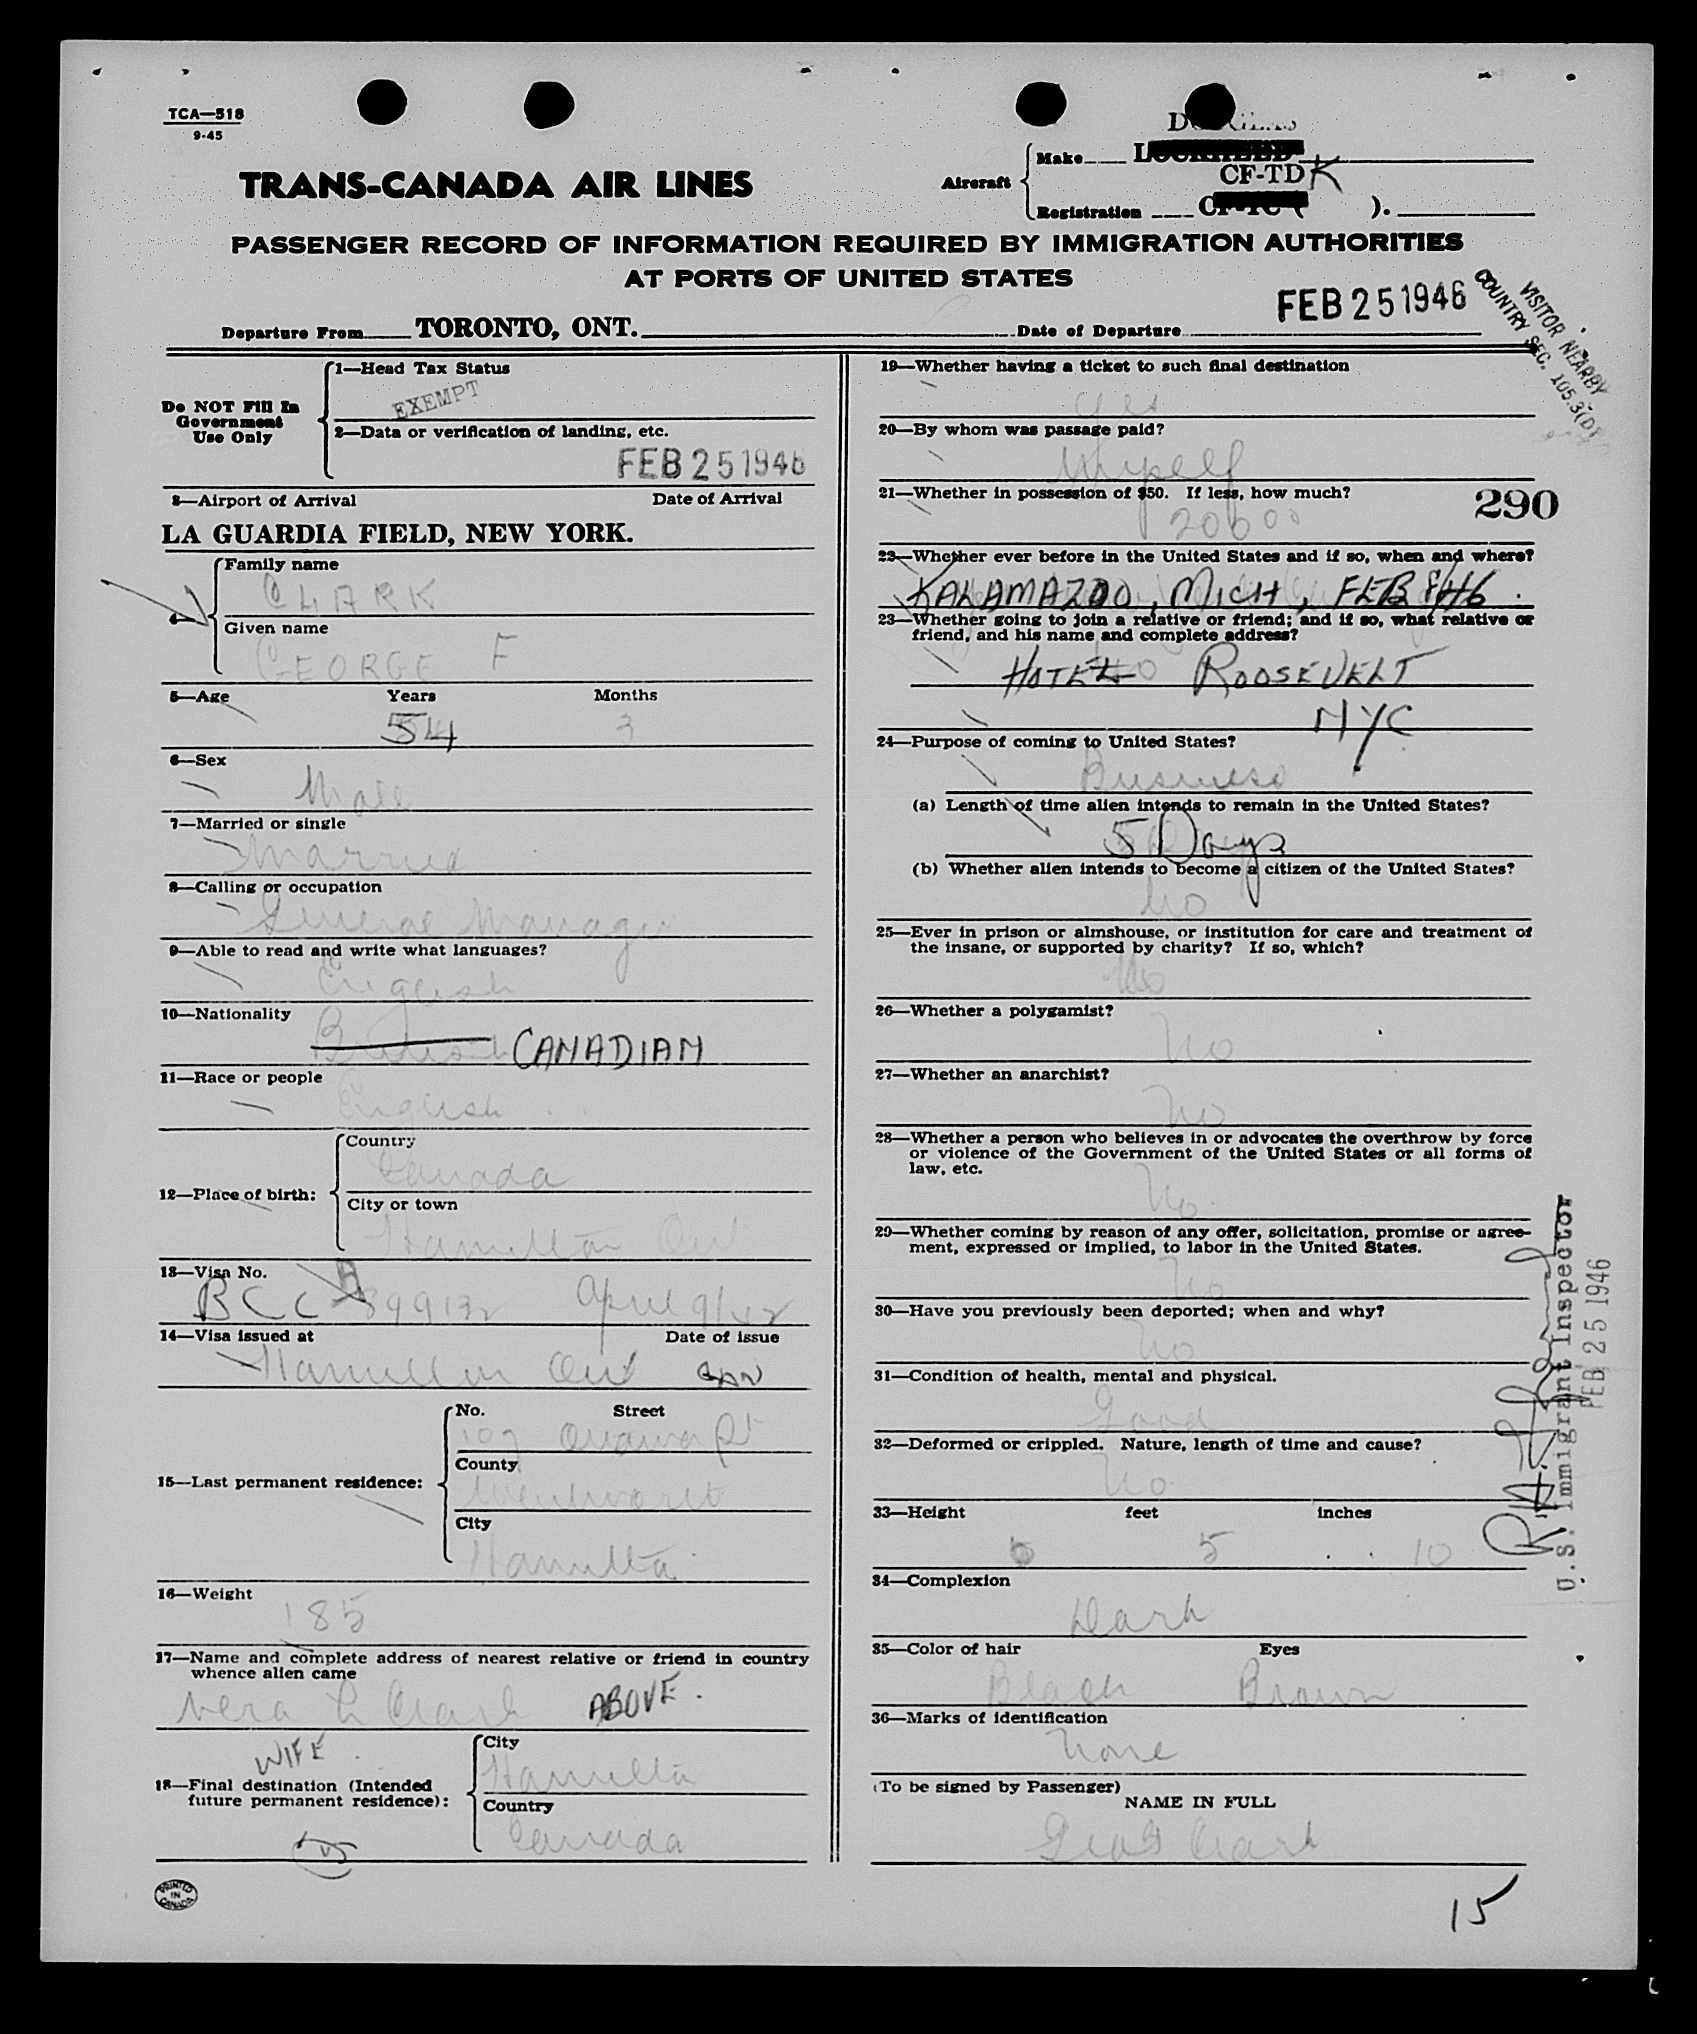 TCA—518
9-45
TRANS-CANADA AIR LINES
Aircraft
Make
LOCKHEED
CF-TDK
Registration CF-TC-( ).
PASSENGER RECORD OF INFORMATION REQUIRED BY IMMIGRATION AUTHORITIES
AT PORTS OF UNITED STATES
Departure From TORONTO, ONT. Date of Departure FEB 25 1946
VISITOR NEARBY
COUNTRY SEC. 105.3(D)
Do NOT Fill In
Government
Use Only
1—Head Tax Status
EXEMPT
2—Data or verification of landing, etc.
FEB 25 1946
3—Airport of Arrival Date of Arrival
LA GUARDIA FIELD, NEW YORK.
4—
Family name
CLARK
Given name
GEORGE F
5—Age Years Months
54 3
6—Sex
Male
7—Married or single
Married
8—Calling or occupation
General Manager
9—Able to read and write what languages?
English
10—Nationality
British CANADIAN
11—Race or people
English
12—Place of birth:
Country
Canada
City or town
Hamilton Ont
13—Visa No.
BCC 89932 April 9/42
14—Visa issued at Date of issue
Hamilton Ont CAN
15—Last permanent residence:
No. Street
107 Ottawa St
County
Wentworth
City
Hamilton
16—Weight
185
17—Name and complete address of nearest relative or friend in country
whence alien came
Vera L Clark ABOVE.
WIFE.
18—Final destination (Intended
future permanent residence):
City
Hamilton
Country
Canada
PRINTED
IN
CANADA
19—Whether having a ticket to such final destination
Yes
20—By whom was passage paid?
Myself
21—Whether in possession of $50. If less, how much?
200 00
290
22—Whether ever before in the United States and if so, when and where?
KALAMAZOO, MICH, FEB 8/46.
23—Whether going to join a relative or friend; and if so, what relative or
friend, and his name and complete address?
No
HOTEL ROOSEVELT
NYC
24—Purpose of coming to United States?
Business
(a) Length of time alien intends to remain in the United States?
5 Days
(b) Whether alien intends to become a citizen of the United States?
No
25—Ever in prison or almshouse, or institution for care and treatment of
the insane, or supported by charity? If so, which?
No
26—Whether a polygamist?
No
27—Whether an anarchist?
No
28—Whether a person who believes in or advocates the overthrow by force
or violence of the Government of the United States or all forms of
law, etc.
No.
29—Whether coming by reason of any offer, solicitation, promise or agree-
ment, expressed or implied, to labor in the United States.
No
30—Have you previously been deported; when and why?
No
31—Condition of health, mental and physical.
Good
32—Deformed or crippled. Nature, length of time and cause?
No
33—Height feet inches
5 10
34—Complexion
Dark
35—Color of hair Eyes
Black Brown
36—Marks of identification
None
(To be signed by Passenger)
NAME IN FULL
Geo F Clark
U.S. Immigrant Inspector
FEB 25 1946
15